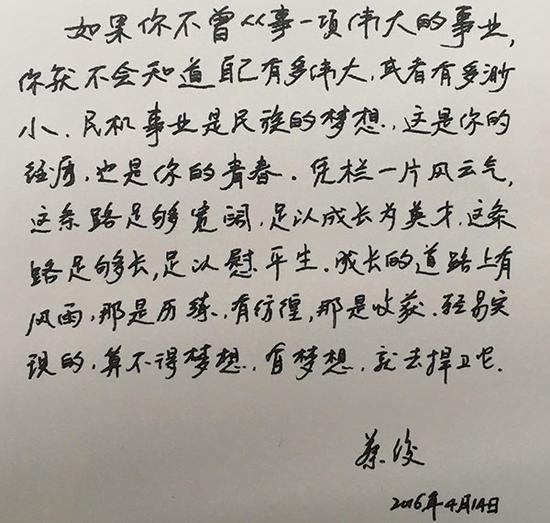 如果你不曾从事一项伟大的事业,
你就不会知道自己有多伟大,或者有多渺
小、民机事业是民族的梦想,这是你的
经历,也是你的青春.凭栏一片风云气,
这条路足够宽阔,足以成长为英才,这条
路足够长,足以慰平生.成长的道路上有
风雨,那是历练,有彷徨,那是收获.轻易实
现的,算不得梦想,有梦想,就去捍卫它.
蔡俊
2016年4月14日